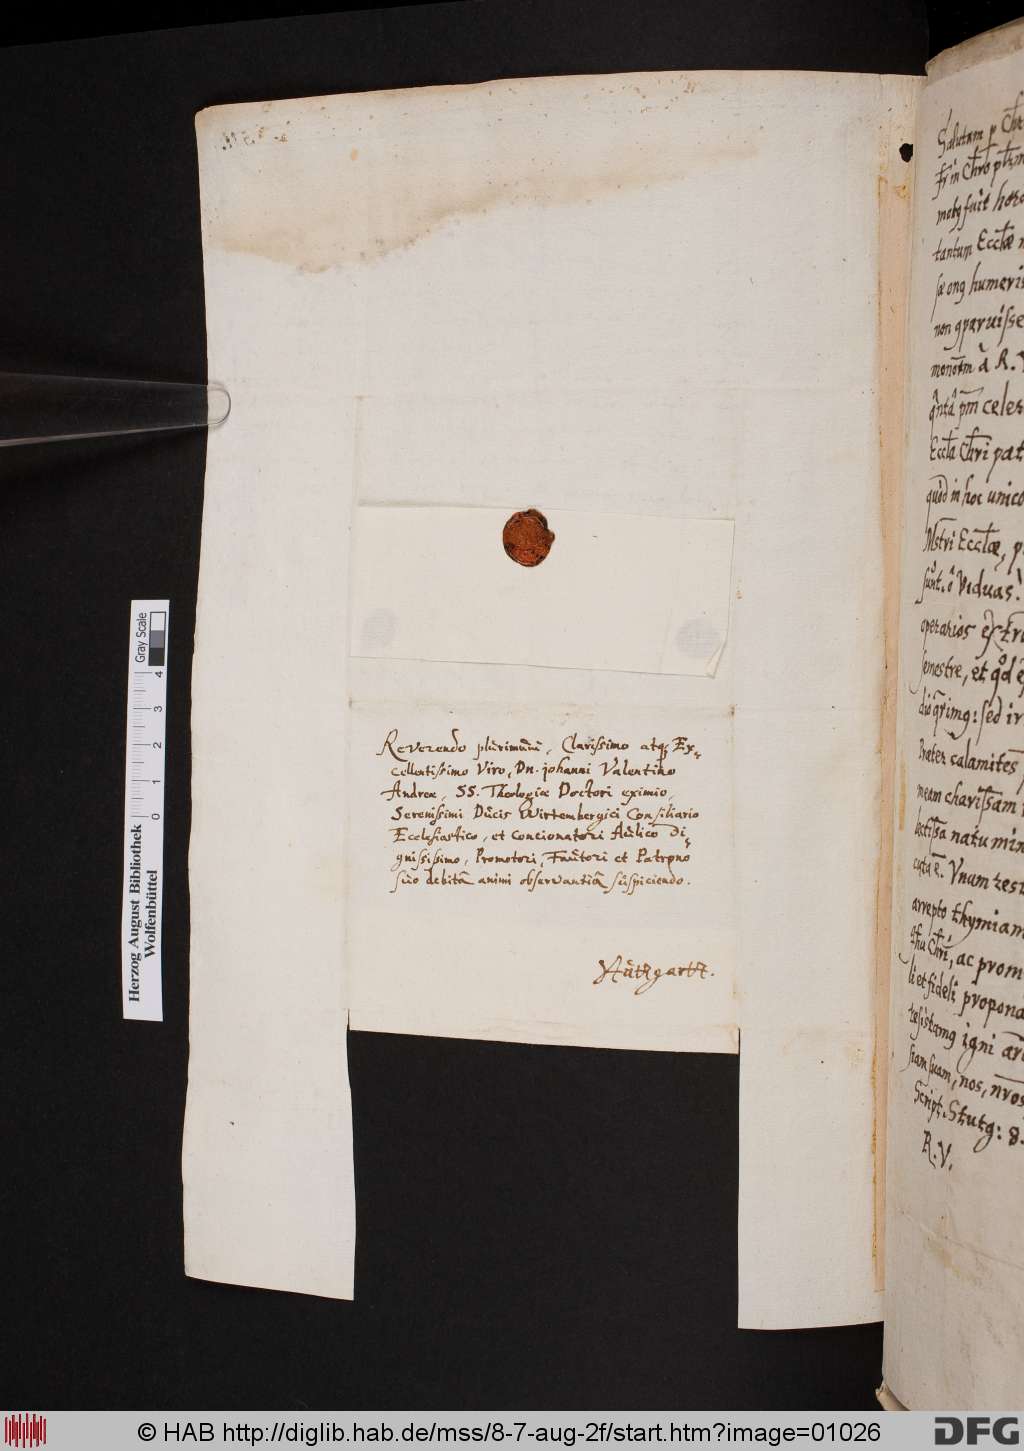 Reverendo plurimùm, Clarissimo atq; Ex-
cellentissimo Viro, Dn. Johanni Valentino
Andreæ, SS. Theologiæ Doctori eximio,
Serenissimi Dùcis Wirtembergici Consiliario
Ecclesiastico, et Concionatori Aùlico Di-
gnissimo, Promotori, Faùtori et Patrono
sùo debitâ animi observantiâ sùspiciendo.
Stùtgartt.
Salutem p Chr
fr in Chro
fuit hero
tantum Eccłæ
humeris
non
à R.
celer
Eccła Chri pat
quòd in hoc unico
Mstri Eccłæ, p
sunt. ô Viduas.
operarios extra
semestre, et qd
sed ir
Præter calamites
meam charissam
natu min
Vnam
arrepto thymiam
Chri, ac prom
li et fideli propona
igni
suam, nos, nros
Script. Stutg: 8.
R. V.
Gray Scale
0 1 2 3 4
Herzog August Bibliothek
Wolfenbüttel
© HAB http://diglib.hab.de/mss/8-7-aug-2f/start.htm?image=01026
DFG